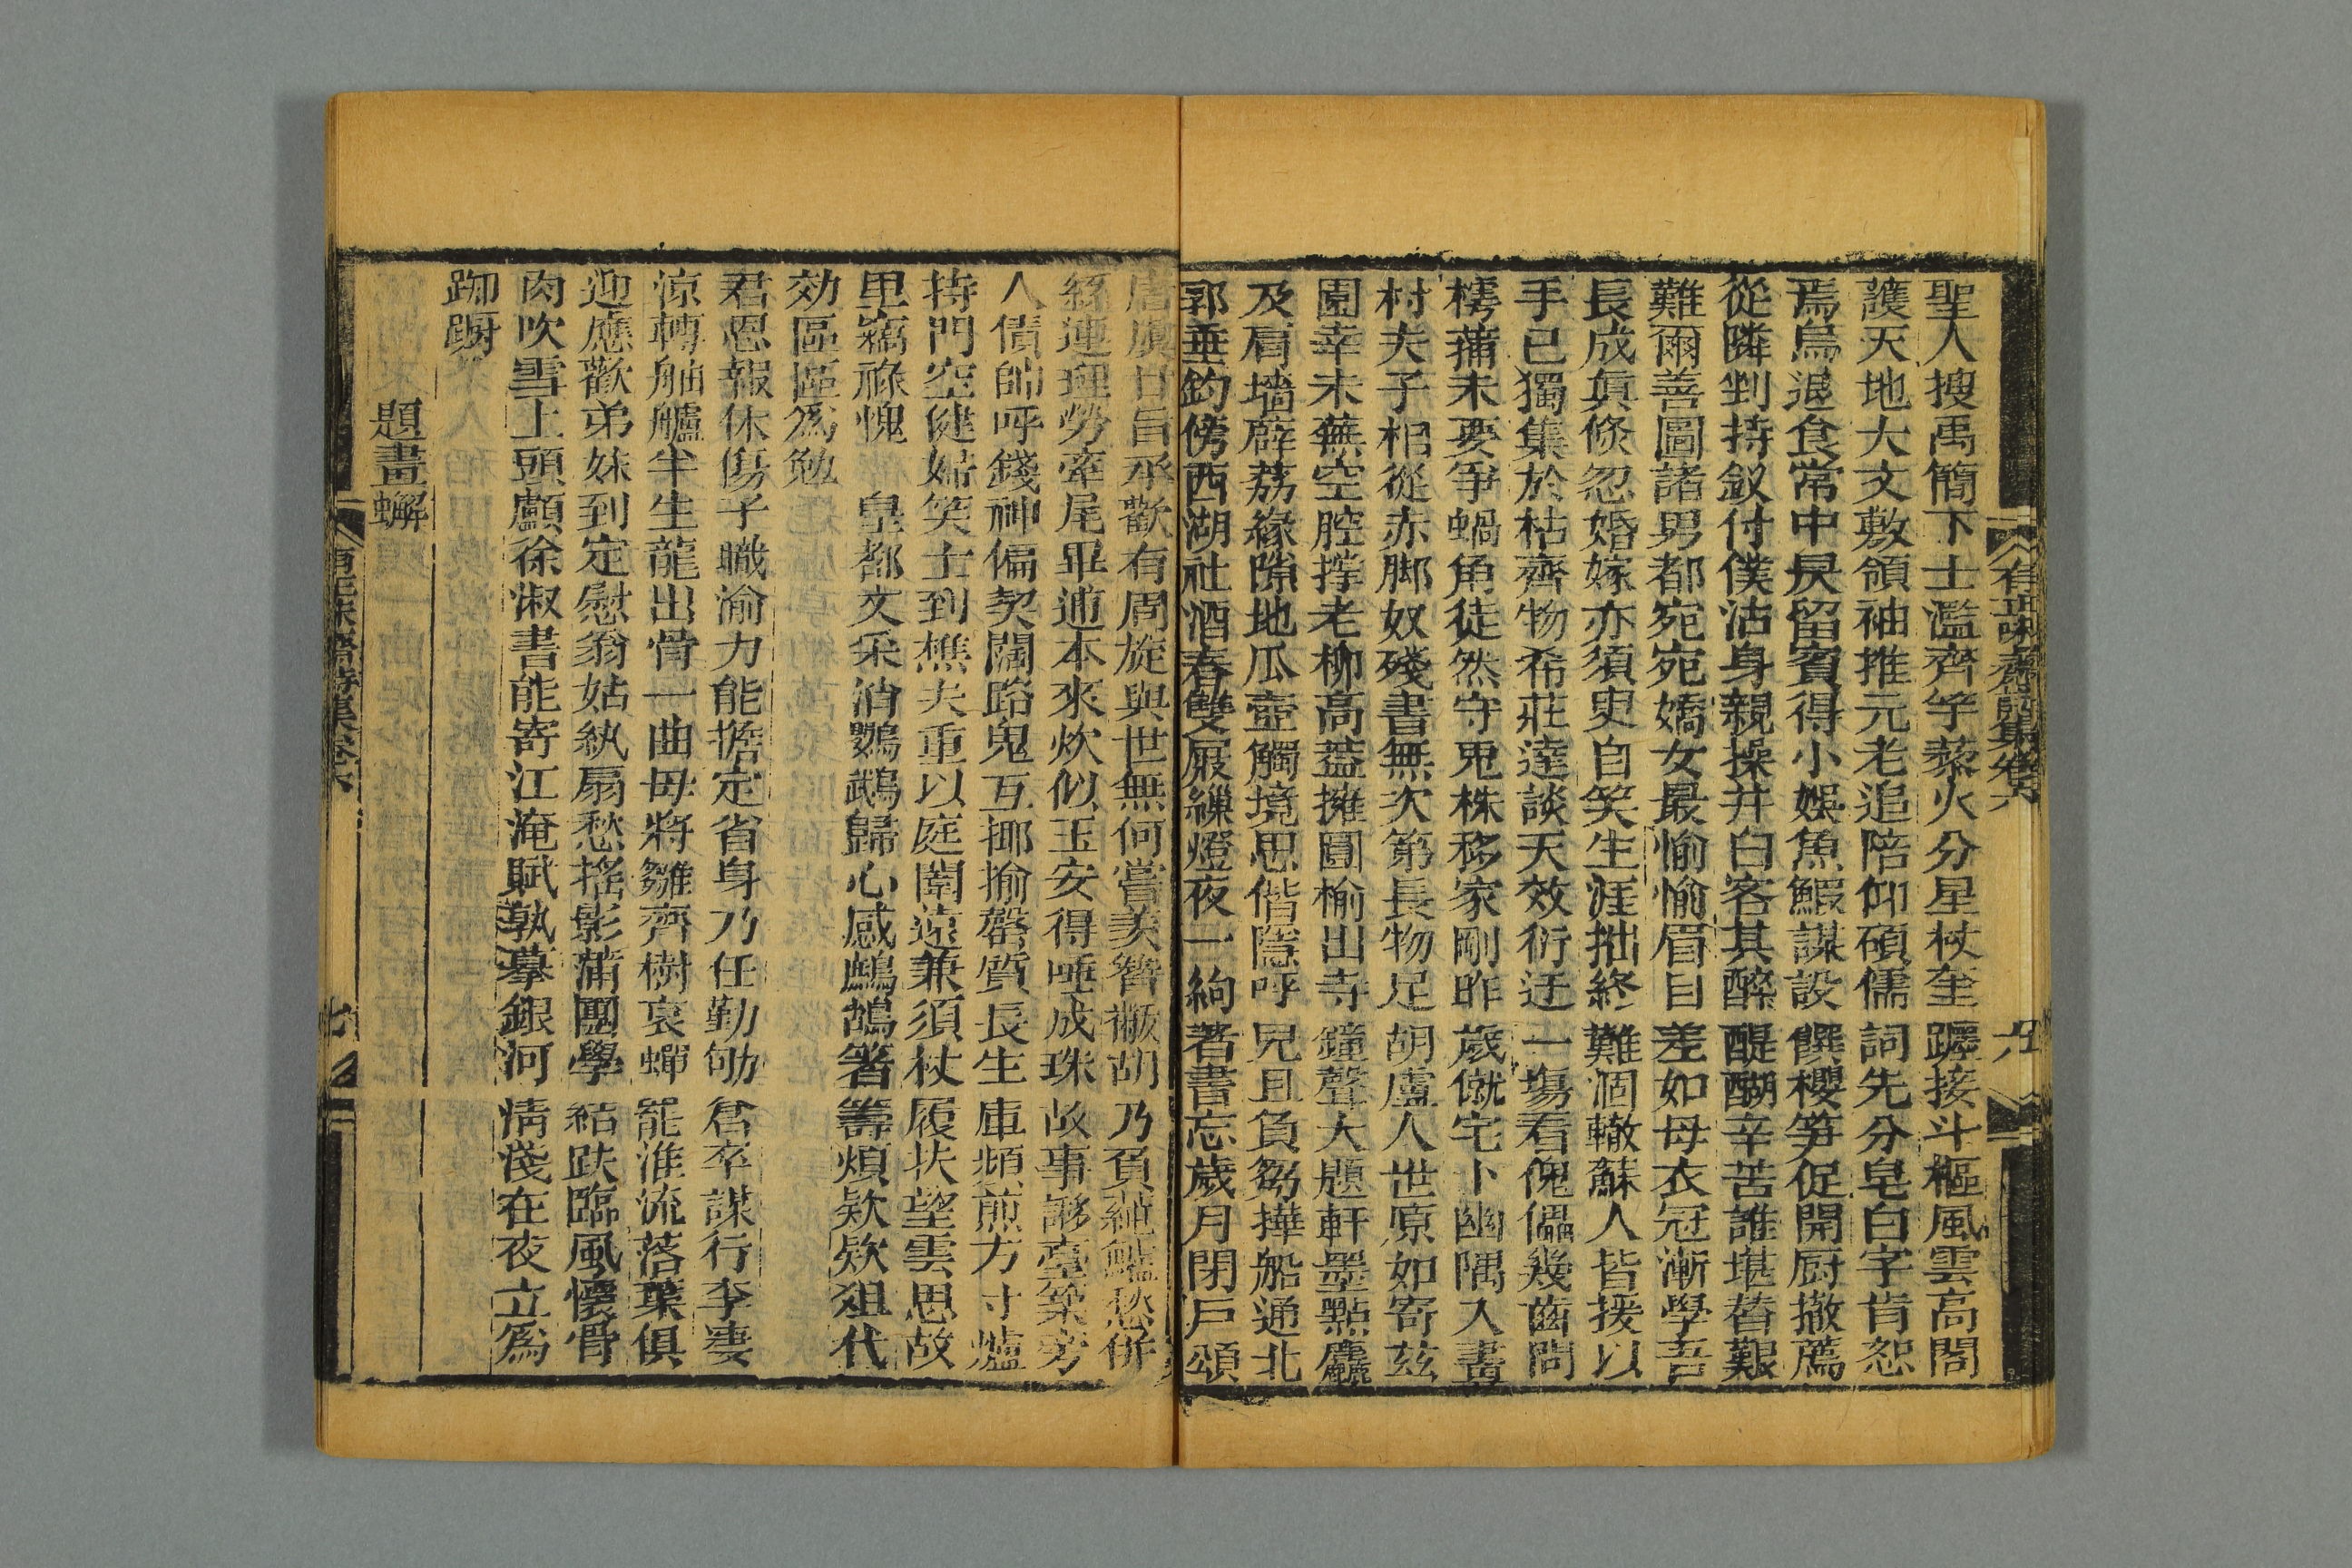 有正味齋詩集卷六
六
聖人搜禹簡下士濫齊竽藜火分星杖奎躔接斗樞風雲高閣
護天地大文敷領袖推元老追陪仰碩儒詞先分皂白字肯恕
焉烏退食常中昃留賓得小娛魚鰕謀設饌櫻筍促開厨撤薦
從隣剉持釵付僕沽身親操井臼客其醉醍醐辛苦誰堪替艱
難爾善圖諸男都宛宛嬌女最愉愉眉目差如母衣冠漸學吾
長成眞倏忽婚嫁亦須臾自笑生涯拙終難涸轍蘇人皆援以
手已獨集於枯齊物希莊達談天效衍迂一場看傀儡幾齒問
樗蒲未要爭蝸角徒然守兎株移家剛昨歲僦宅卜幽隅入畫
村夫子相從赤脚奴殘書無次第長物足胡盧人世原如寄茲
園幸未蕪空腔撐老柳高蓋擁圓榆出寺鐘聲大題軒墨點麤
及肩墻薜荔緣隙地瓜壺觸境思偕隱呼兒且負芻撶船通北
郭垂釣傍西湖社酒春雙屐繅燈夜一絇著書忘歲月閉戶頌
唐虞甘旨承歡有周旋與世無何嘗美簪黻胡乃負蓴鱸愁併
絲連理勞牽尾畢逋本來炊似玉安得唾成珠故事誇臺築旁
人債帥呼錢神偏契闊路鬼互揶揄罄質長生庫頻煎方寸爐
持門空健婦笑士到樵夫重以庭闈遠兼須杖履扶望雲思故
里竊祿愧　皇都文采消鸚鵡歸心感鷓鴣箸籌煩欵欵狙代
効區區爲勉
君恩報休傷子職渝力能擔定省身乃任勤劬倉卒謀行李淒
涼轉舳艫半生龍出骨一曲母將雛齊樹哀蟬罷淮流落葉俱
迎應歡弟妹到定慰翁姑紈扇愁搖影蒲團學結趺臨風懷骨
肉吹雪上頭顱徐淑書能寄江淹賦孰摹銀河淸淺在夜立爲
踟躕
題畫蠏
有正味齋詩集卷六
七